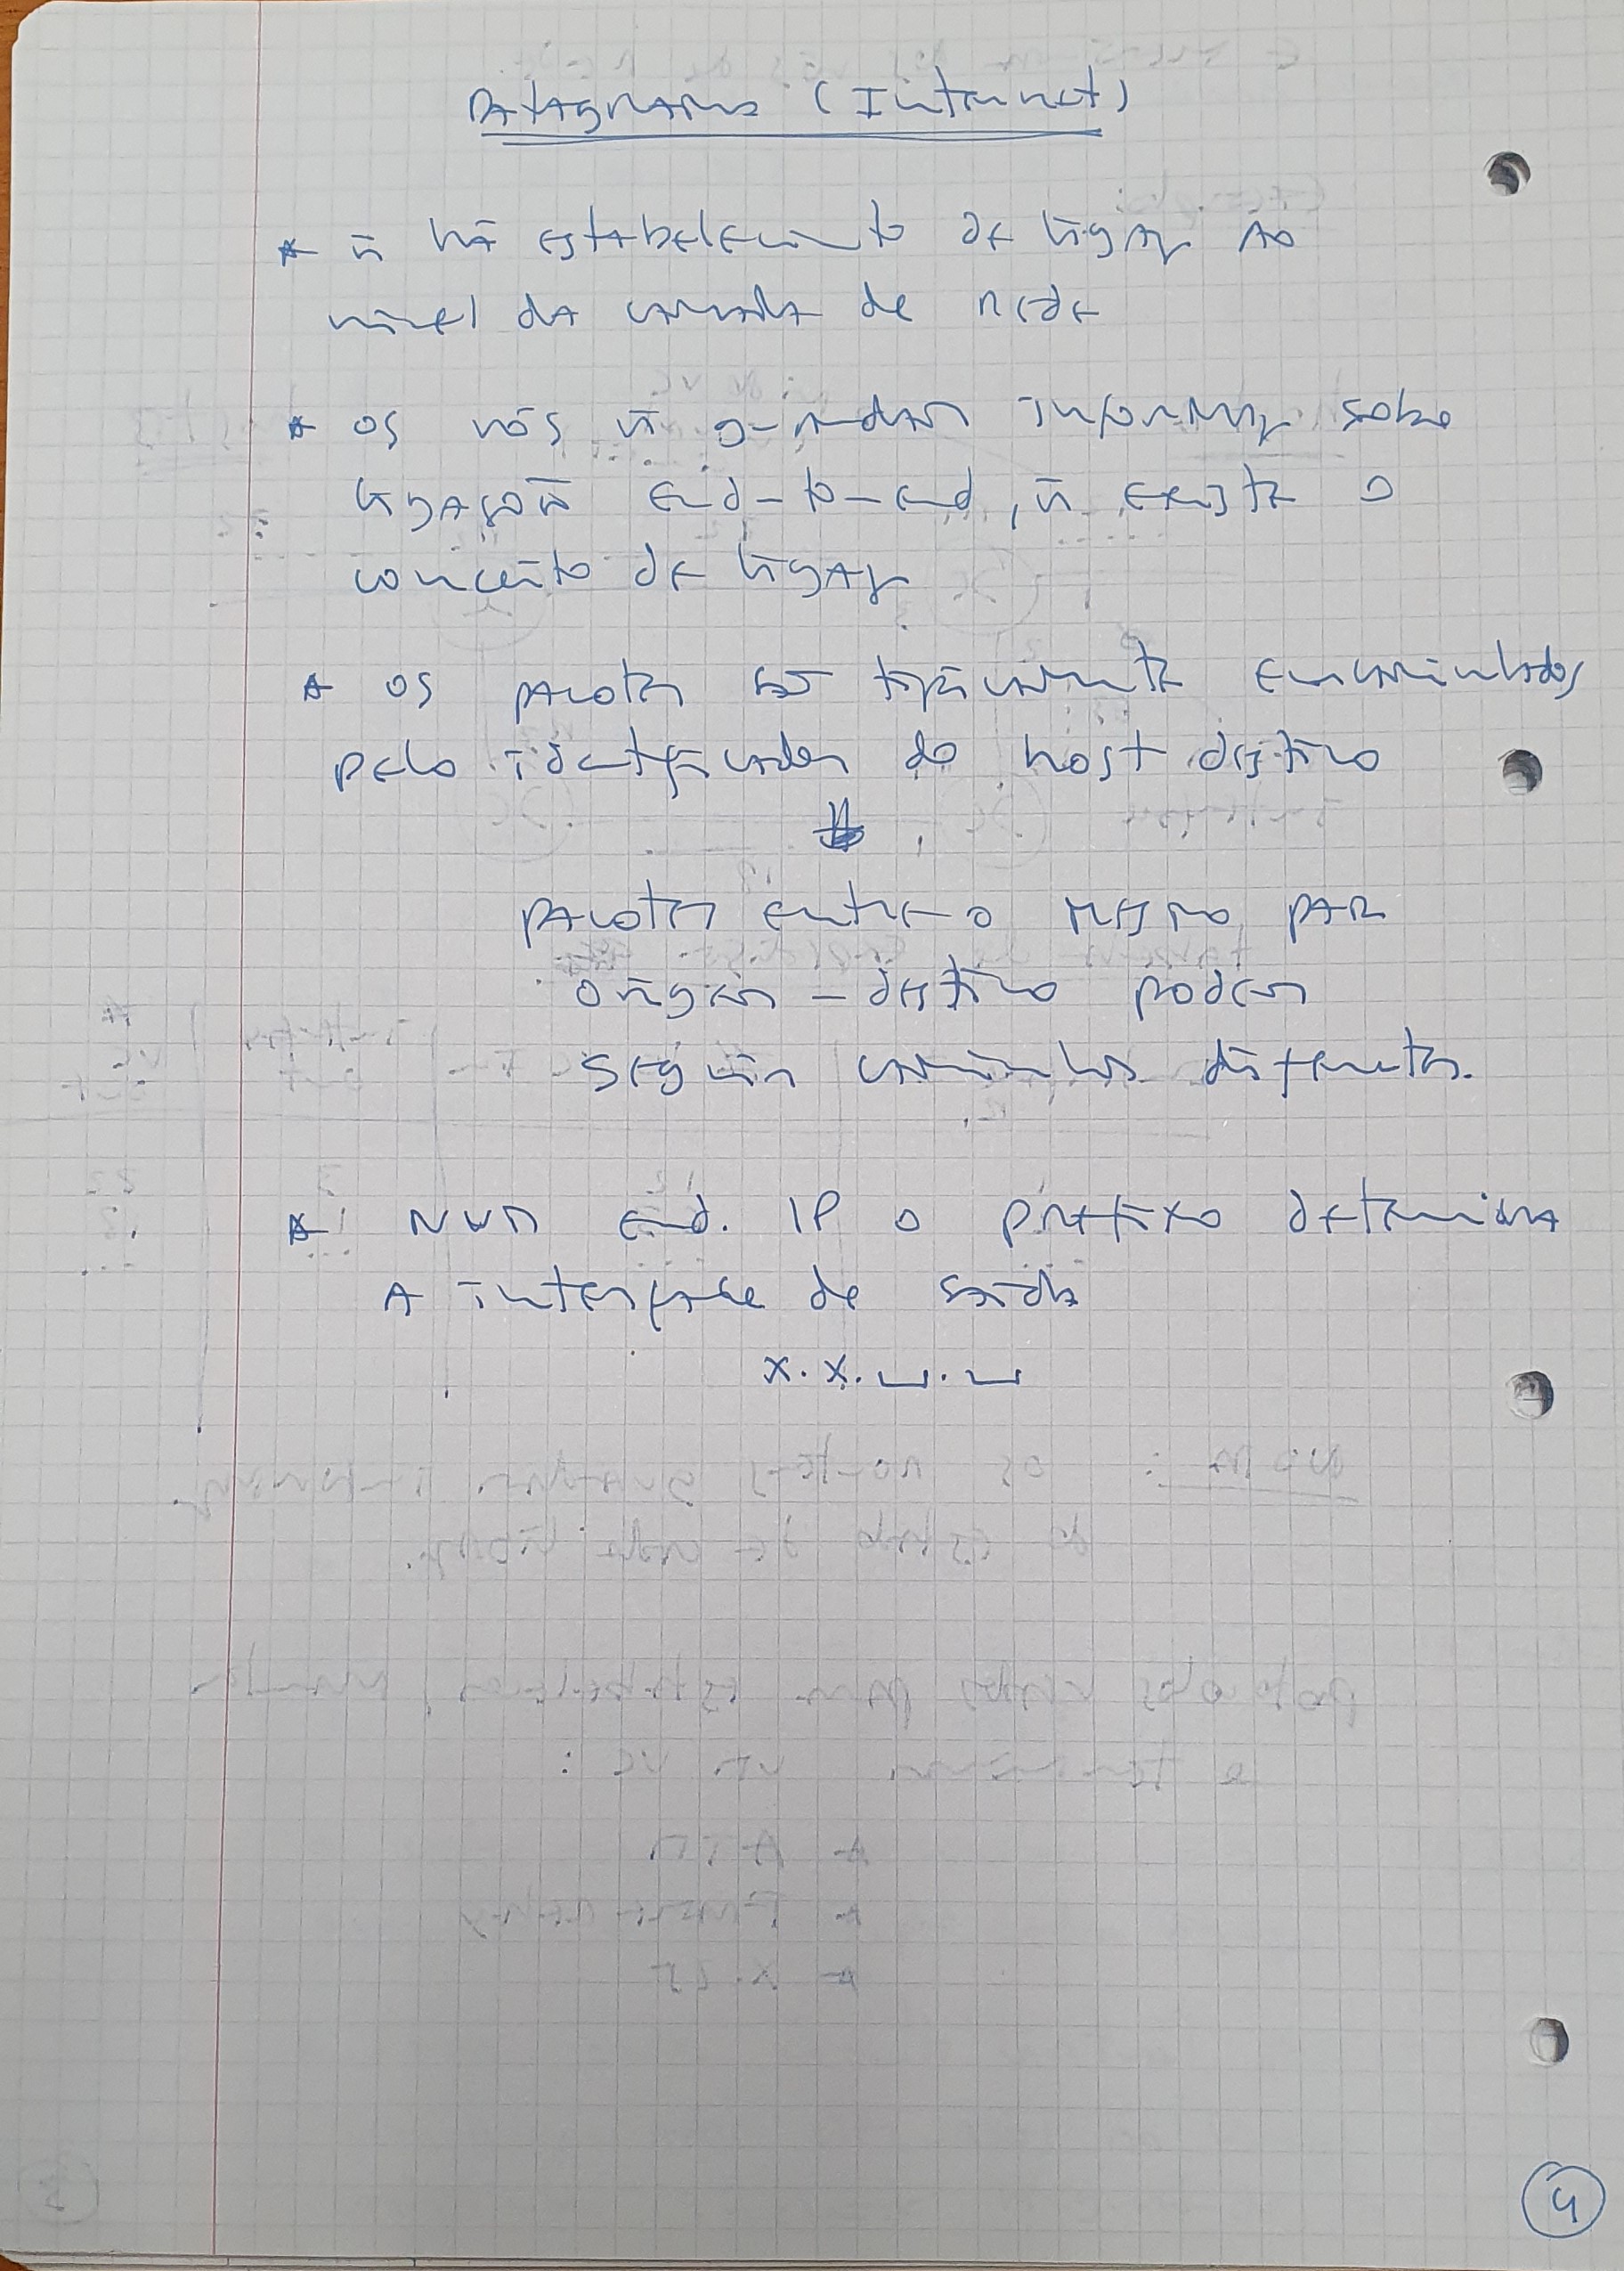 Datagrama (Internet)
* ñ há estabelecimento de ligaç ao
nível da camada de rede
* os nós ñ guardam informaç sobre
ligações end-to-end, ñ existe o
conceito de ligaç
* os pacotes são tipicamente encaminhados
pelo identificador do host destino
⇓
pacotes entre o mesmo par
origem - destino podem
seguir caminhos diferentes.
* Num end. IP o prefixo determina
a interface de saída
x.x.⎵.⎵
4